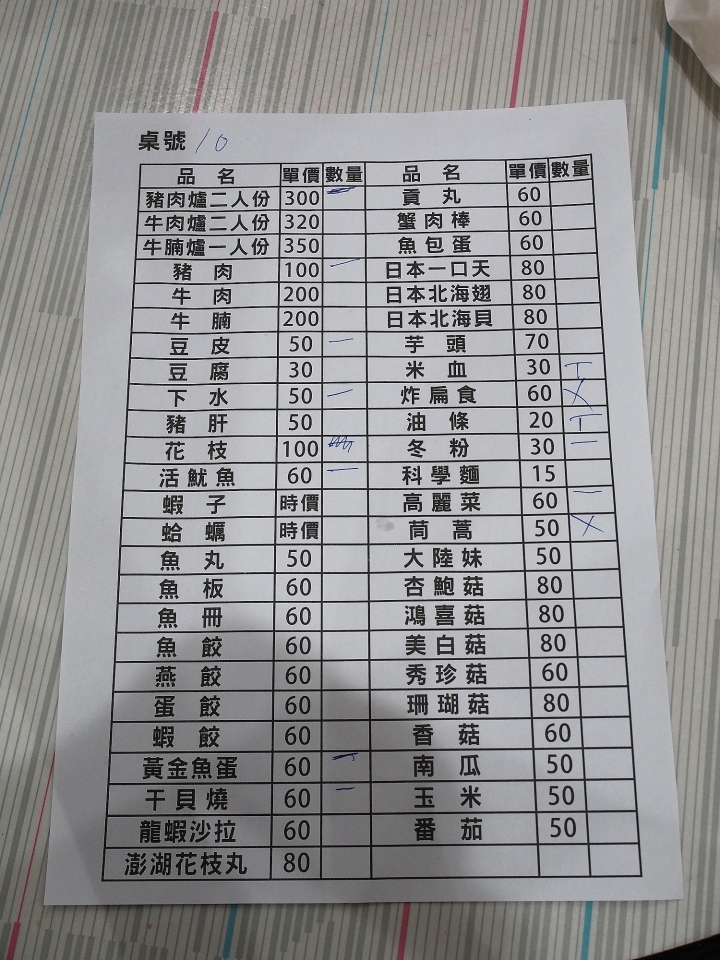 桌號 10
品名 單價 數量 品名 單價 數量
豬肉爐二人份 300 貢丸 60
牛肉爐二人份 320 蟹肉棒 60
牛腩爐一人份 350 魚包蛋 60
豬肉 100 一 日本一口天 80
牛肉 200 日本北海翅 80
牛腩 200 日本北海貝 80
豆皮 50 一 芋頭 70
豆腐 30 米血 30 T
下水 50 一 炸扁食 60 X
豬肝 50 油條 20 T
花枝 100 冬粉 30 一
活魷魚 60 一 科學麵 15
蝦子 時價 高麗菜 60 一
蛤蠣 時價 茼蒿 50 X
魚丸 50 大陸妹 50
魚板 60 杏鮑菇 80
魚冊 60 鴻喜菇 80
魚餃 60 美白菇 80
燕餃 60 秀珍菇 60
蛋餃 60 珊瑚菇 80
蝦餃 60 香菇 60
黃金魚蛋 60 南瓜 50
干貝燒 60 一 玉米 50
龍蝦沙拉 60 番茄 50
澎湖花枝丸 80